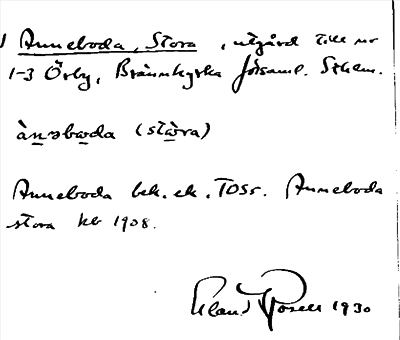 Anneboda, Stora, utgård till nr
1-3 Örby, Brännkyrka församl. Sthlm.
ànəboda (stòra)
Anneboda bek. ek. TOSr. Anneboda
stora kb 1908.
Erland Rosell 1930